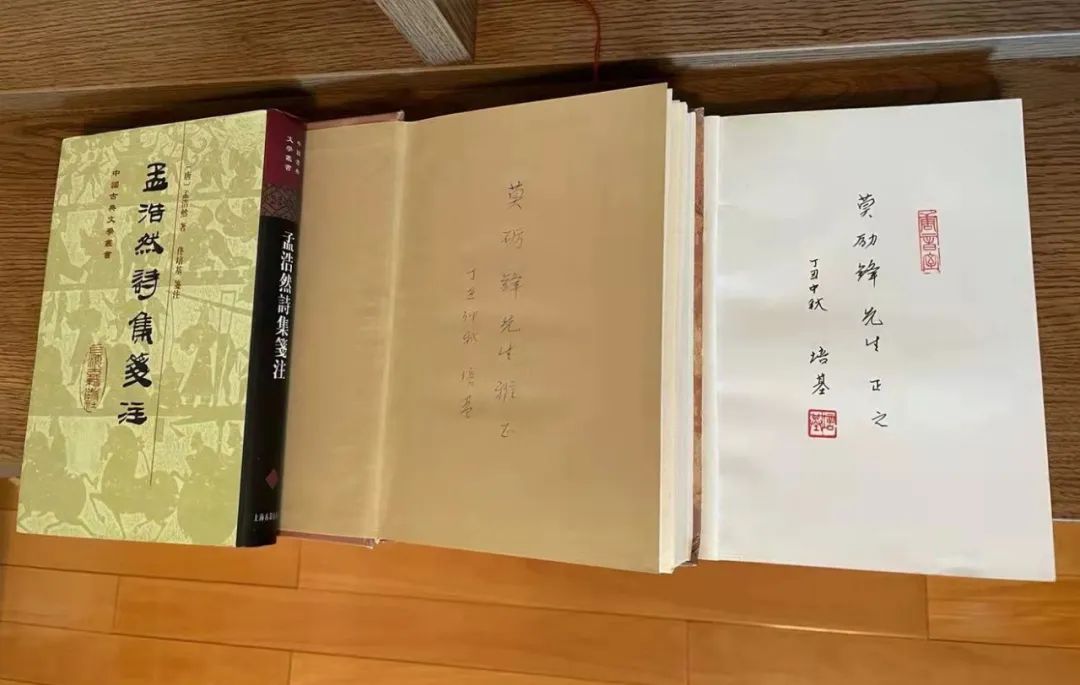 孟浩然詩集箋注
中國古典文學叢書
〔唐〕孟浩然 著
佟培基 箋注
中國古典
文學叢書
孟浩然詩集箋注
上海古籍出版社
莫砺鋒先生雅正
丁丑仲秋 培基
莫励鋒先生正之
丁丑中秋 培基
唐音室